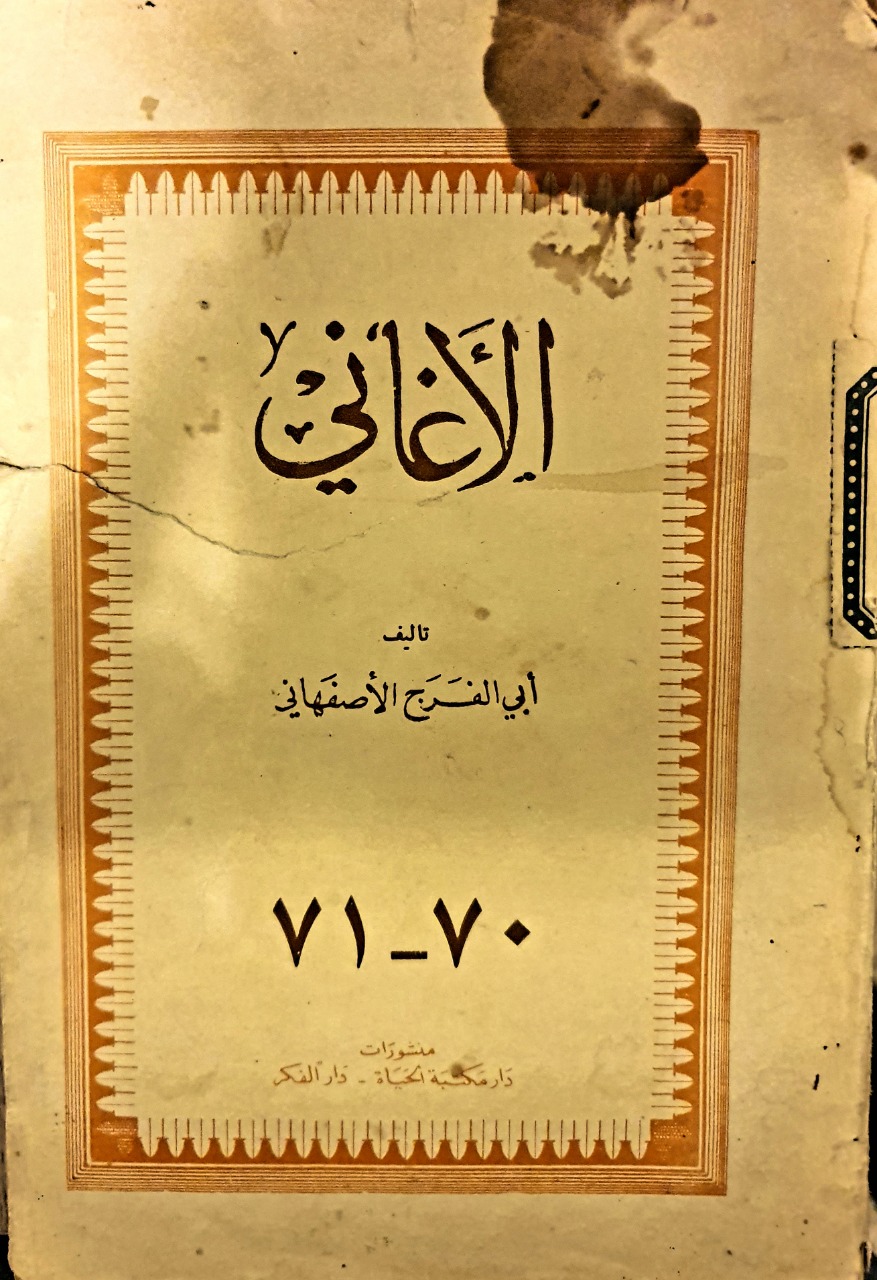 الأغاني
تاليف
أبي الفَرَج الأصفَهاني
٧١ـ٧٠
منشورَات
دَار مَكتبَة الحَيَاة - دَار الفكر